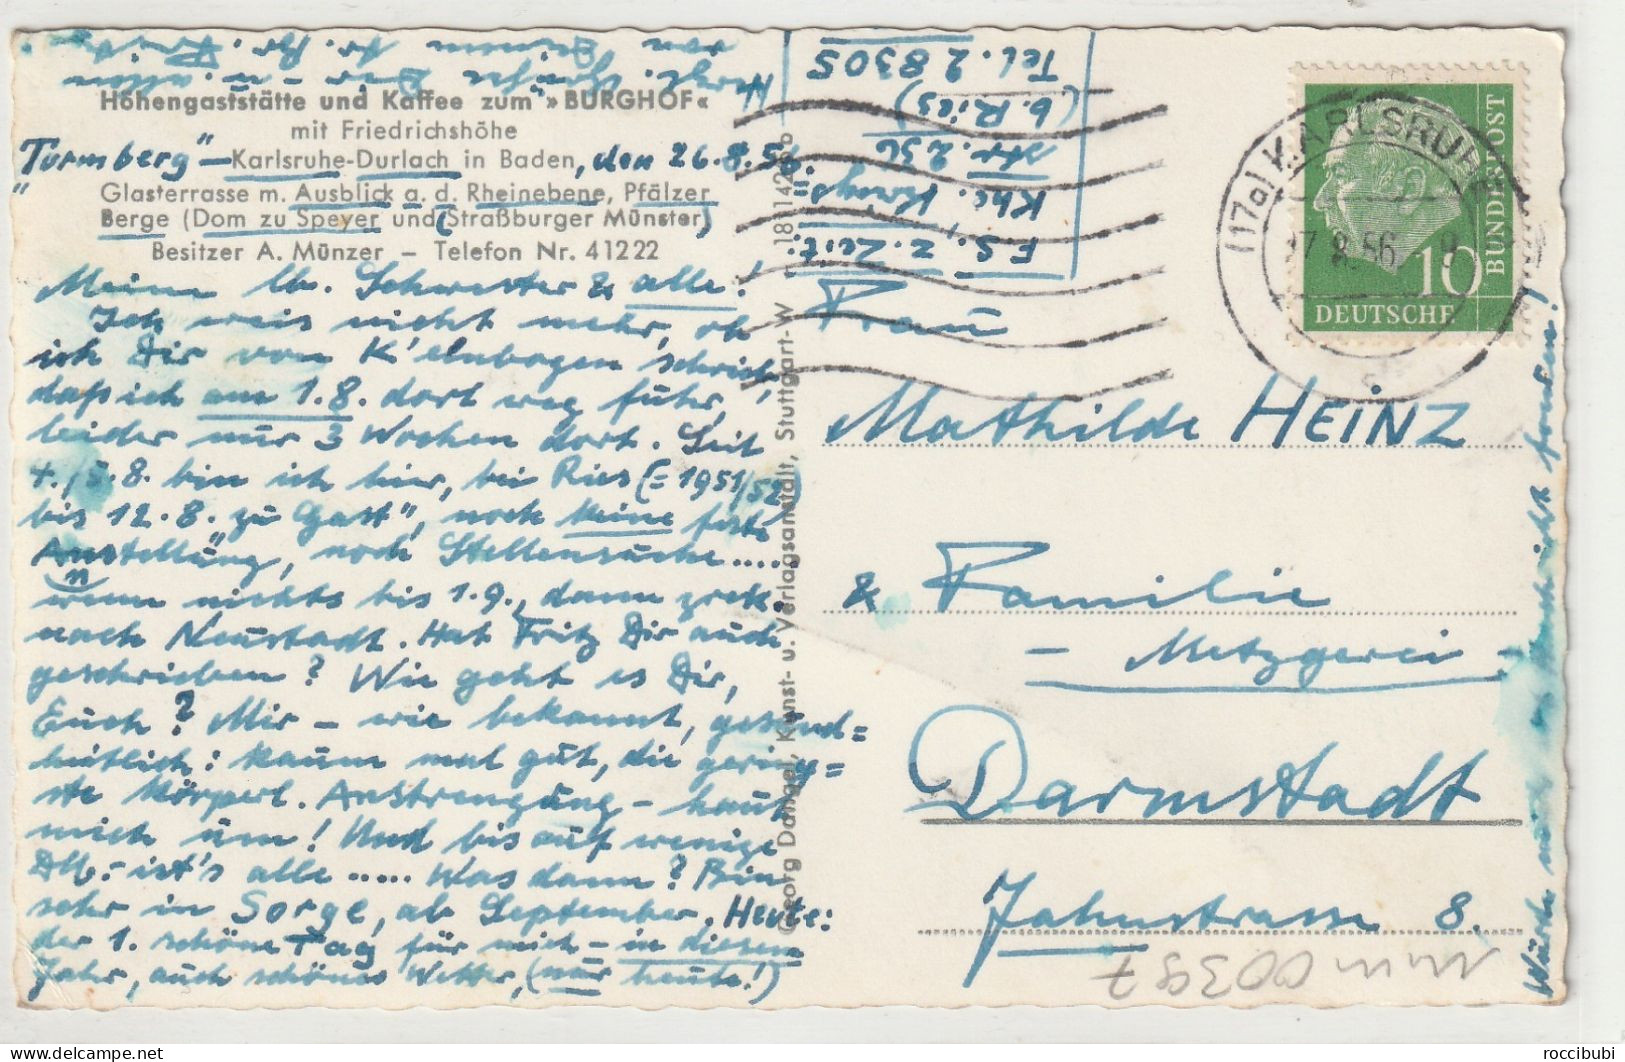 Höhengaststätte und Kaffee zum »BURGHOF«
mit Friedrichshöhe
"Turmberg" – Karlsruhe-Durlach in Baden, den 26.8.56.
Glasterrasse m. Ausblick a. d. Rheinebene, Pfälzer
Berge (Dom zu Speyer und (Straßburger Münster)
Besitzer A. Münzer – Telefon Nr. 41222
Meine lb. Schwester & alle!
Ich weis nicht mehr, ob
ich Dir vom K'elnbogen schrieb,
daß ich am 1.8. dort weg fuhr,
leider nur 3 Wochen dort. Seit
4./5.8. bin ich hier, bei Ries (= 1951/52)
bis 12.8. zu Gast", noch keine feste
Anstellung, noch Stellensuche.....
wenn nichts bis 1.9., dann zrck.
nach Neustadt. Hat Fritz Dir auch
geschrieben? Wie geht es Dir,
Euch? Mir – wie bekannt, gesund=
heitlich: kaum mal gut, die gering=
ste körperl. Anstrengung – haut
mich um! Und bis auf wenige
DM.- ist's alle ..... Was dann? Bin
sehr in Sorge, ab September. Heute:
der 1. schöne Tag für mich – in diesem
Jahr, auch schönes Wetter, (nur heute!)
Herzl. Grüße Dir – u. allen
von Deinem tr. Br. Fritz
Georg Dangel, Kunst- u. Verlagsanstalt, Stuttgart-W
F S., z. Zeit:
Khe. Kriegs=
str. 236
(b. Ries)
Tel. 28305
(17a) KARLSRUHE
8.56
DEUTSCHE
BUNDESPOST
10
Frau
Mathilde HEINZ
& Familie
– Metzgerei –
Darmstadt
Jahnstrasse 8.
roccibubi